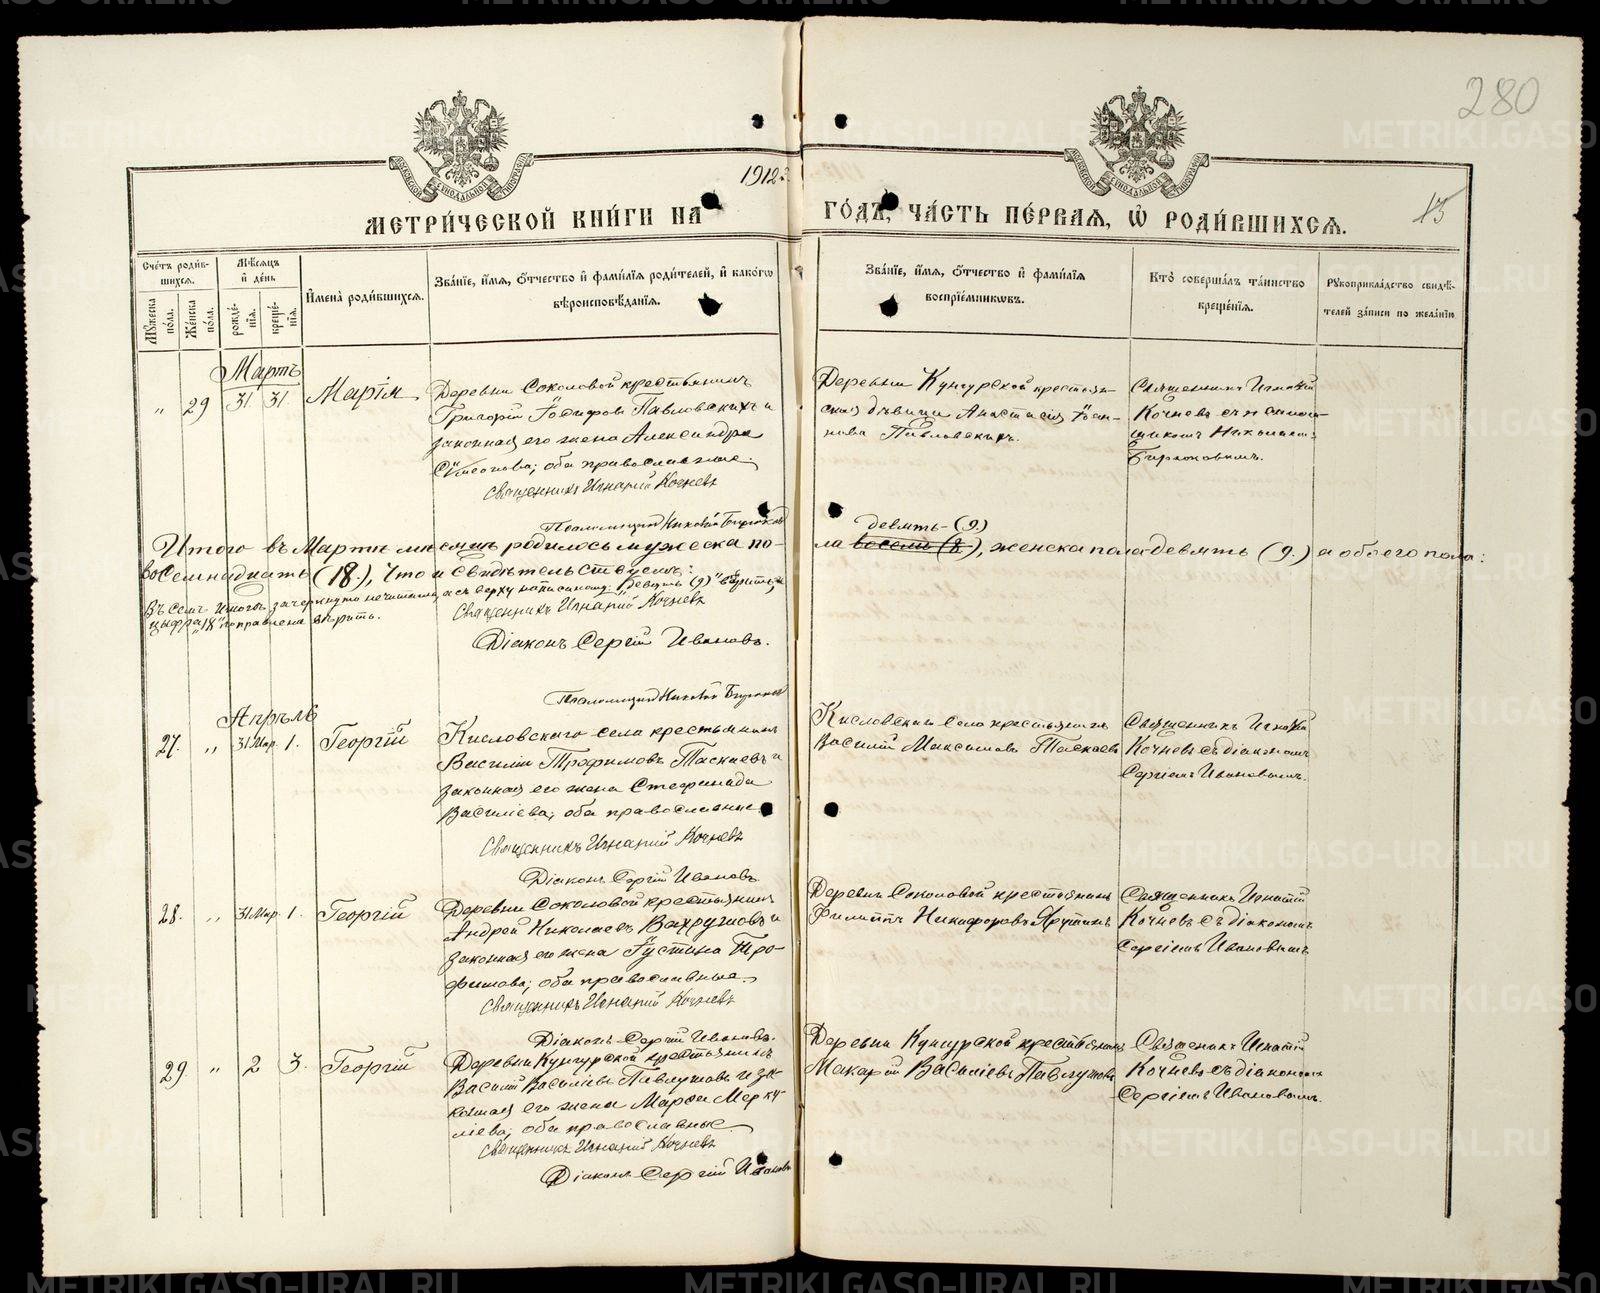 280
1912 г.
МЕТРИ́ЧЕСКОЙ КНИ́ГИ НА ГО́ДЪ, ЧА́СТЬ ПЕ́РВАЯ, Ѡ҆ РОДИ́ВШИХСѦ.
13
Сче́тъ роди́вшихся.
Мѣ́сяцъ и де́нь
Мꙋ́жеска по́ла.
Же́нска по́ла.
рожде́нїѧ.
креще́нїѧ.
Имена̀ роди́вшихсѧ.
Зва́нїе, и́мѧ, ѻ́тчество и фами́лїѧ роди́телей, и како́гѡ вѣроисповѣ́данїѧ.
Зва́нїе, и́мѧ, ѻ́тчество и фами́лїѧ воспрїе́мникѡвъ.
Кто̀ соверша́лъ та́инство креще́нїѧ.
Рꙋкоприкла́дство свидѣ́телей за́писи по жела́нїю
Мартъ
„ 29 31 31
Марія
Деревни Соколовой крестьянинъ
Григорій Іосифовъ Павловскихъ и
законная его жена Александра
Симеонова; оба православные.
Священникъ Игнатій Кочневъ
Псаломщикъ Николай Бирюковъ
Деревни Кунгурской крестьян-
ская дѣвица Анастасія Іоан-
нова Павловскихъ.
Священникъ Игнатій
Кочневъ съ псалом-
щикомъ Николаемъ
Бирюковымъ.
Итого въ Мартѣ мѣсяцѣ родилось мужеска по-
ла восемь (8.), женска пола девять (9.) а обоего пола:
девять (9.)
восемнадцать (18.), что и свидѣтельствуемъ:
Въ семъ итогѣ зачеркнуто не читать, а сверху написанному „девять (9)" вѣрить, и
цыфра „18" поправлена вѣрить.
Священникъ Игнатій Кочневъ
Діаконъ Сергій Ивановъ.
Псаломщикъ Николай Бирюковъ
Апрѣль
27. „ 31 Мар. 1.
Георгій
Кисловскаго села крестьянинъ
Василій Трофимовъ Таскаевъ и
законная его жена Стефанида
Василіева; оба православные.
Священникъ Игнатій Кочневъ
Діаконъ Сергій Ивановъ
Кисловскаго села крестьянинъ
Василій Максимовъ Таскаевъ
Священникъ Игнатій
Кочневъ съ діакономъ
Сергіемъ Ивановымъ.
28. „ 31 Мар. 1.
Георгій
Деревни Соколовой крестьянинъ
Андрей Николаевъ Вахрушовъ и
законная его жена Іустина Тро-
фимова; оба православные.
Священникъ Игнатій Кочневъ
Діаконъ Сергій Ивановъ.
Деревни Соколовой крестьянинъ
Филиппъ Никифоровъ
Священникъ Игнатій
Кочневъ съ діакономъ
Сергіемъ Ивановымъ
29 „ 2 3.
Георгій
Деревни Кунгурской крестьянинъ
Василій Василіевъ Павлушовъ и за-
конная его жена Марфа Мерку-
ліева; оба православные
Священникъ Игнатій Кочневъ
Діаконъ Сергій Ивановъ
Деревни Кунгурской крестьянинъ
Макарій Василіевъ Павлушовъ
Священникъ Игнатій
Кочневъ съ діакономъ
Сергіемъ Ивановымъ.
METRIKI.GASO-URAL.RU